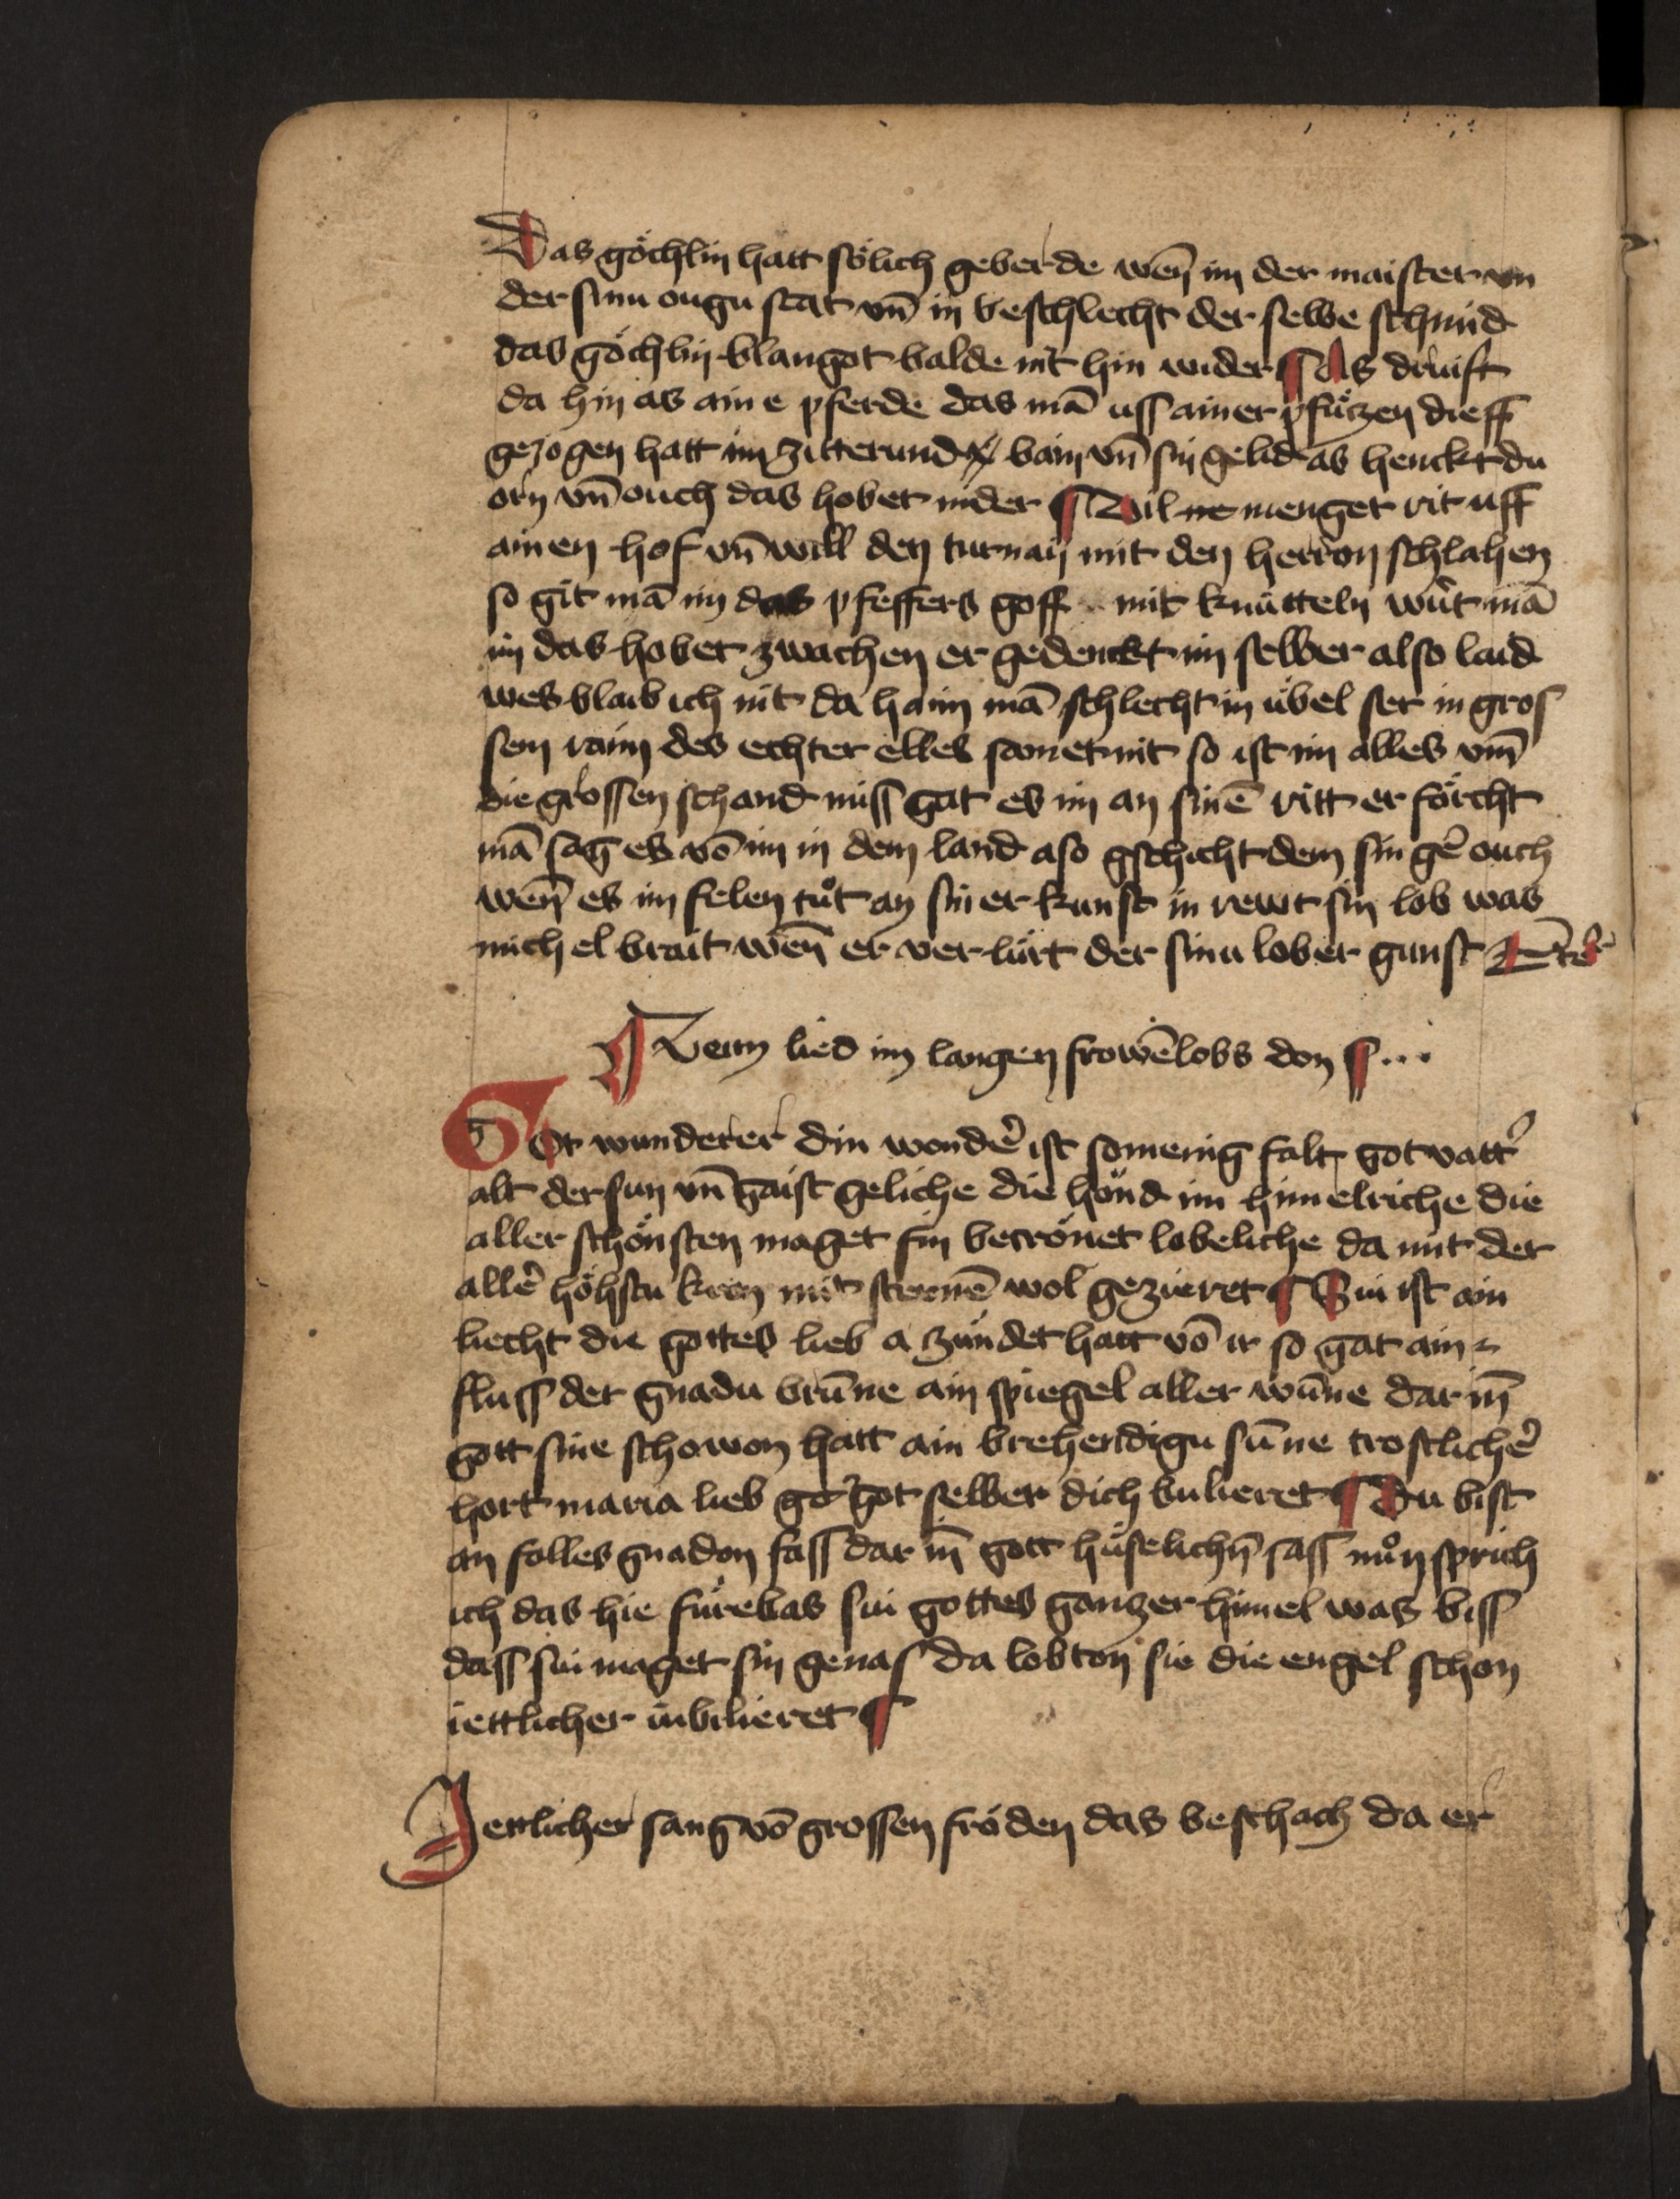 Das göchlin hatt sölich geberde wen̄ im der maister vn
der sinu ougu stat vn̄ in beschlecht der selbe schmid
das göchlin blanget balde nit hin wider ¶ As druift
da hin as aine pferde das mā uss ainer pfützen dieff
gezogen hatt im zitterund bain vn̄ sin gelid as henckt du
orn vn̄ ouch das hobet nider ¶ Vil menger rit uff
ainen hof vn̄ will den turnay mit den herron schlahen
so git mā im das pfeffers goff mit knütteln wirt mā
im das hobet zwachen er gedenckt im selber also laid
wes blaib ich nit da haim mā schlecht in übel ser in gros
sem raim des echter elles samet nit so ist im alles vm̄
die grossen schand miss gat es im an sinē ritt er förcht
mā sag es vō im in dem land aso gschicht dem singē ouch
wen̄ es im felen tůt an siner kunst in rewt sin lob was
michel brait wen̄ er verlürt der sinu lober gunst
¶ Item lied im langen frowēlobs don ¶ ...
Got wunderer din wondē ist somenig falt got vattē
alt der sun vn̄ gaist geliche die hönd im himelriche die
aller schönsten maget sin becrönet lobeliche da mit der
allē höhstu kron mit sternē wol gezieret ¶ Sin ist ain
liecht die gottes lieb a zündet hatt vō ir so gat ain
fluss der gnadu brūne ain spiegel aller wūne dar in̄
gott sine schowon hatt ain brehendigu sūne trostlichē
hort maria lieb got selber dich bulieret ¶ Du bist
an folles gnadon fass dar in̄ gott hüselichn̄ sass nůn sprich
ich das hie fürebas sin gottes ganzer himel was biss
dass sin maget sin genas da lobton sie die engel schon
iettlicher iubilieret ¶
Jettlicher sang vō grossen fröden das beschach da er